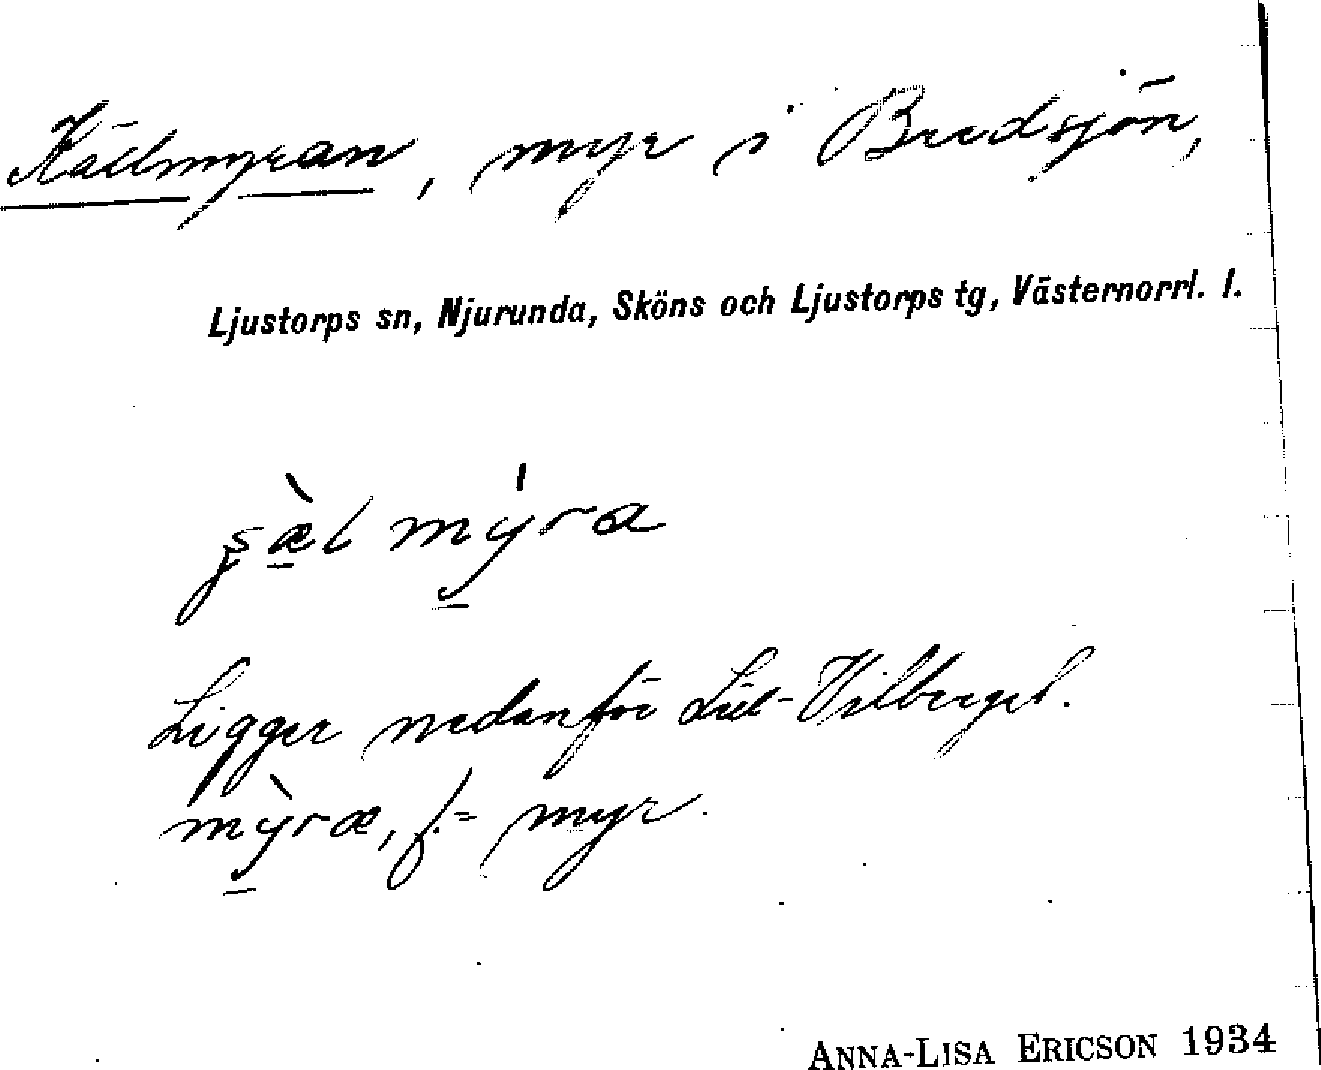 Källmyran, myr i Bredsjön,
Ljustorps sn, Njurunda, Sköns och Ljustorps tg, Västernorrl. l.
mýra
Ligger nedanför Lill-Vilberget.
mỳræ, f. = myr.
ANNA-LISA ERICSON 1934